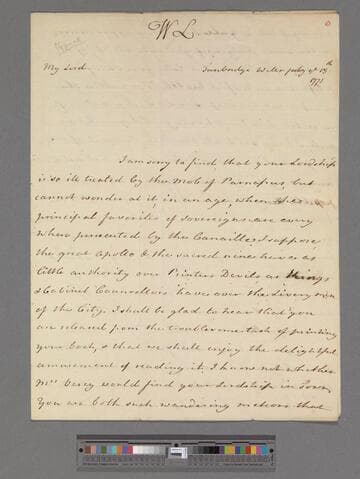 W L
My Lord
Tunbridge Wells July ye 18th
1771
I am sorry to find that your Lordship
is so ill treated by the Mob of Parnassus, but
cannot wonder at it in an age, when the
principal favorites of Sovereigns are every
where persecuted by the Canaille, I suppose
the great Apollo & the sacred nine have as
little authority over Printers Devils as Kings
& Cabinet Counsellors have over the Livery men
of the City. I shall be glad to hear that you
are released from the troublesome task of printing
your book, & that we shall enjoy the delightful
amusement of reading it. I know not whether
Mrs Vesey would find your Lordship in Town
You are both such wandering meteors that